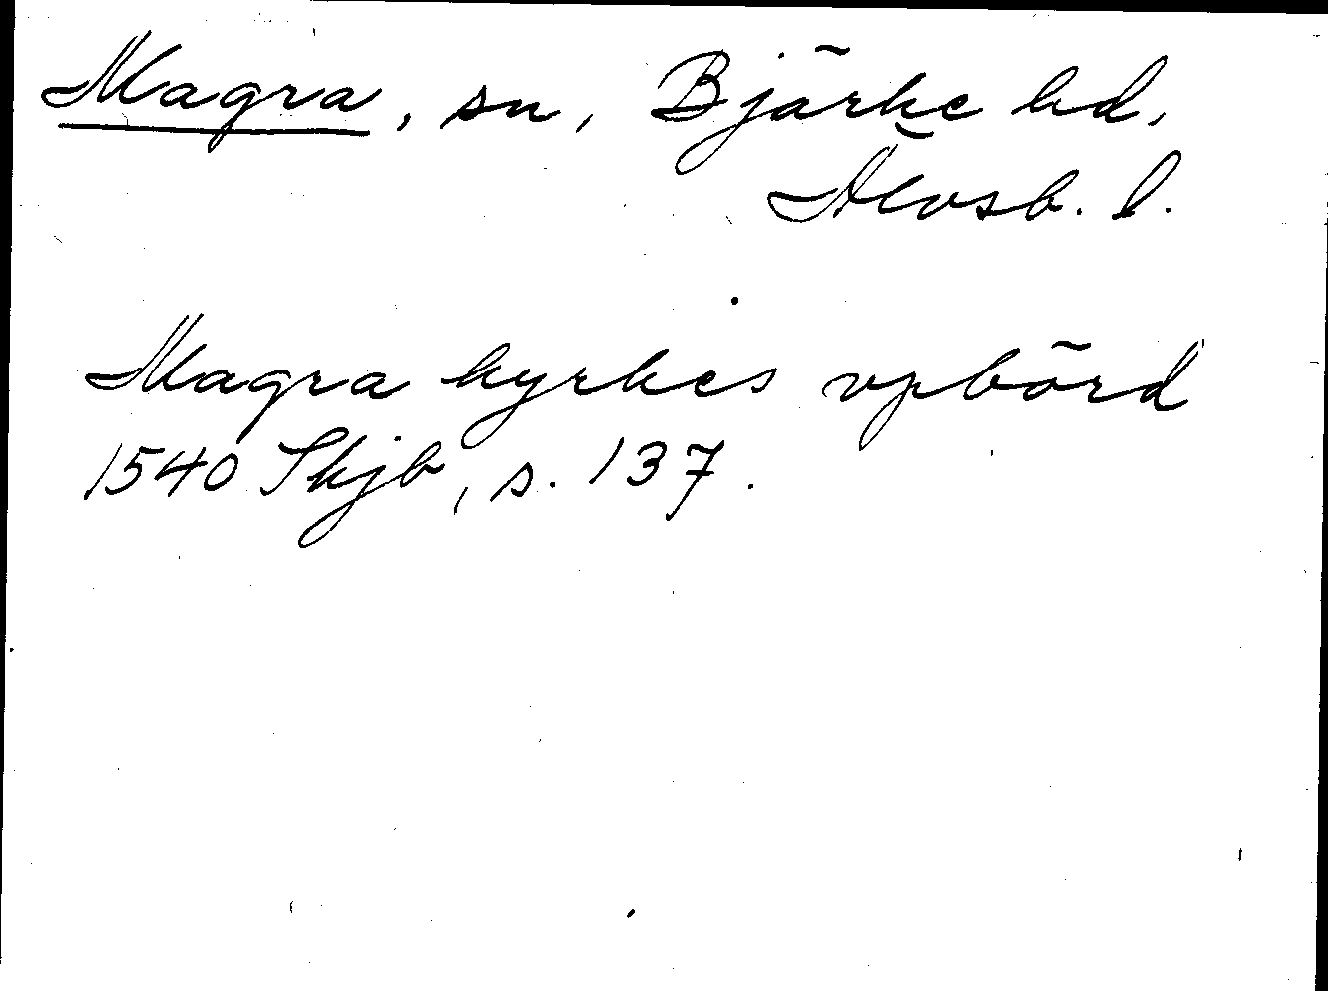 Magra, sn, Bjärke hd,
Älvsb. l.
Magra kyrkes vpbörd
1540 Skjb, s. 137.